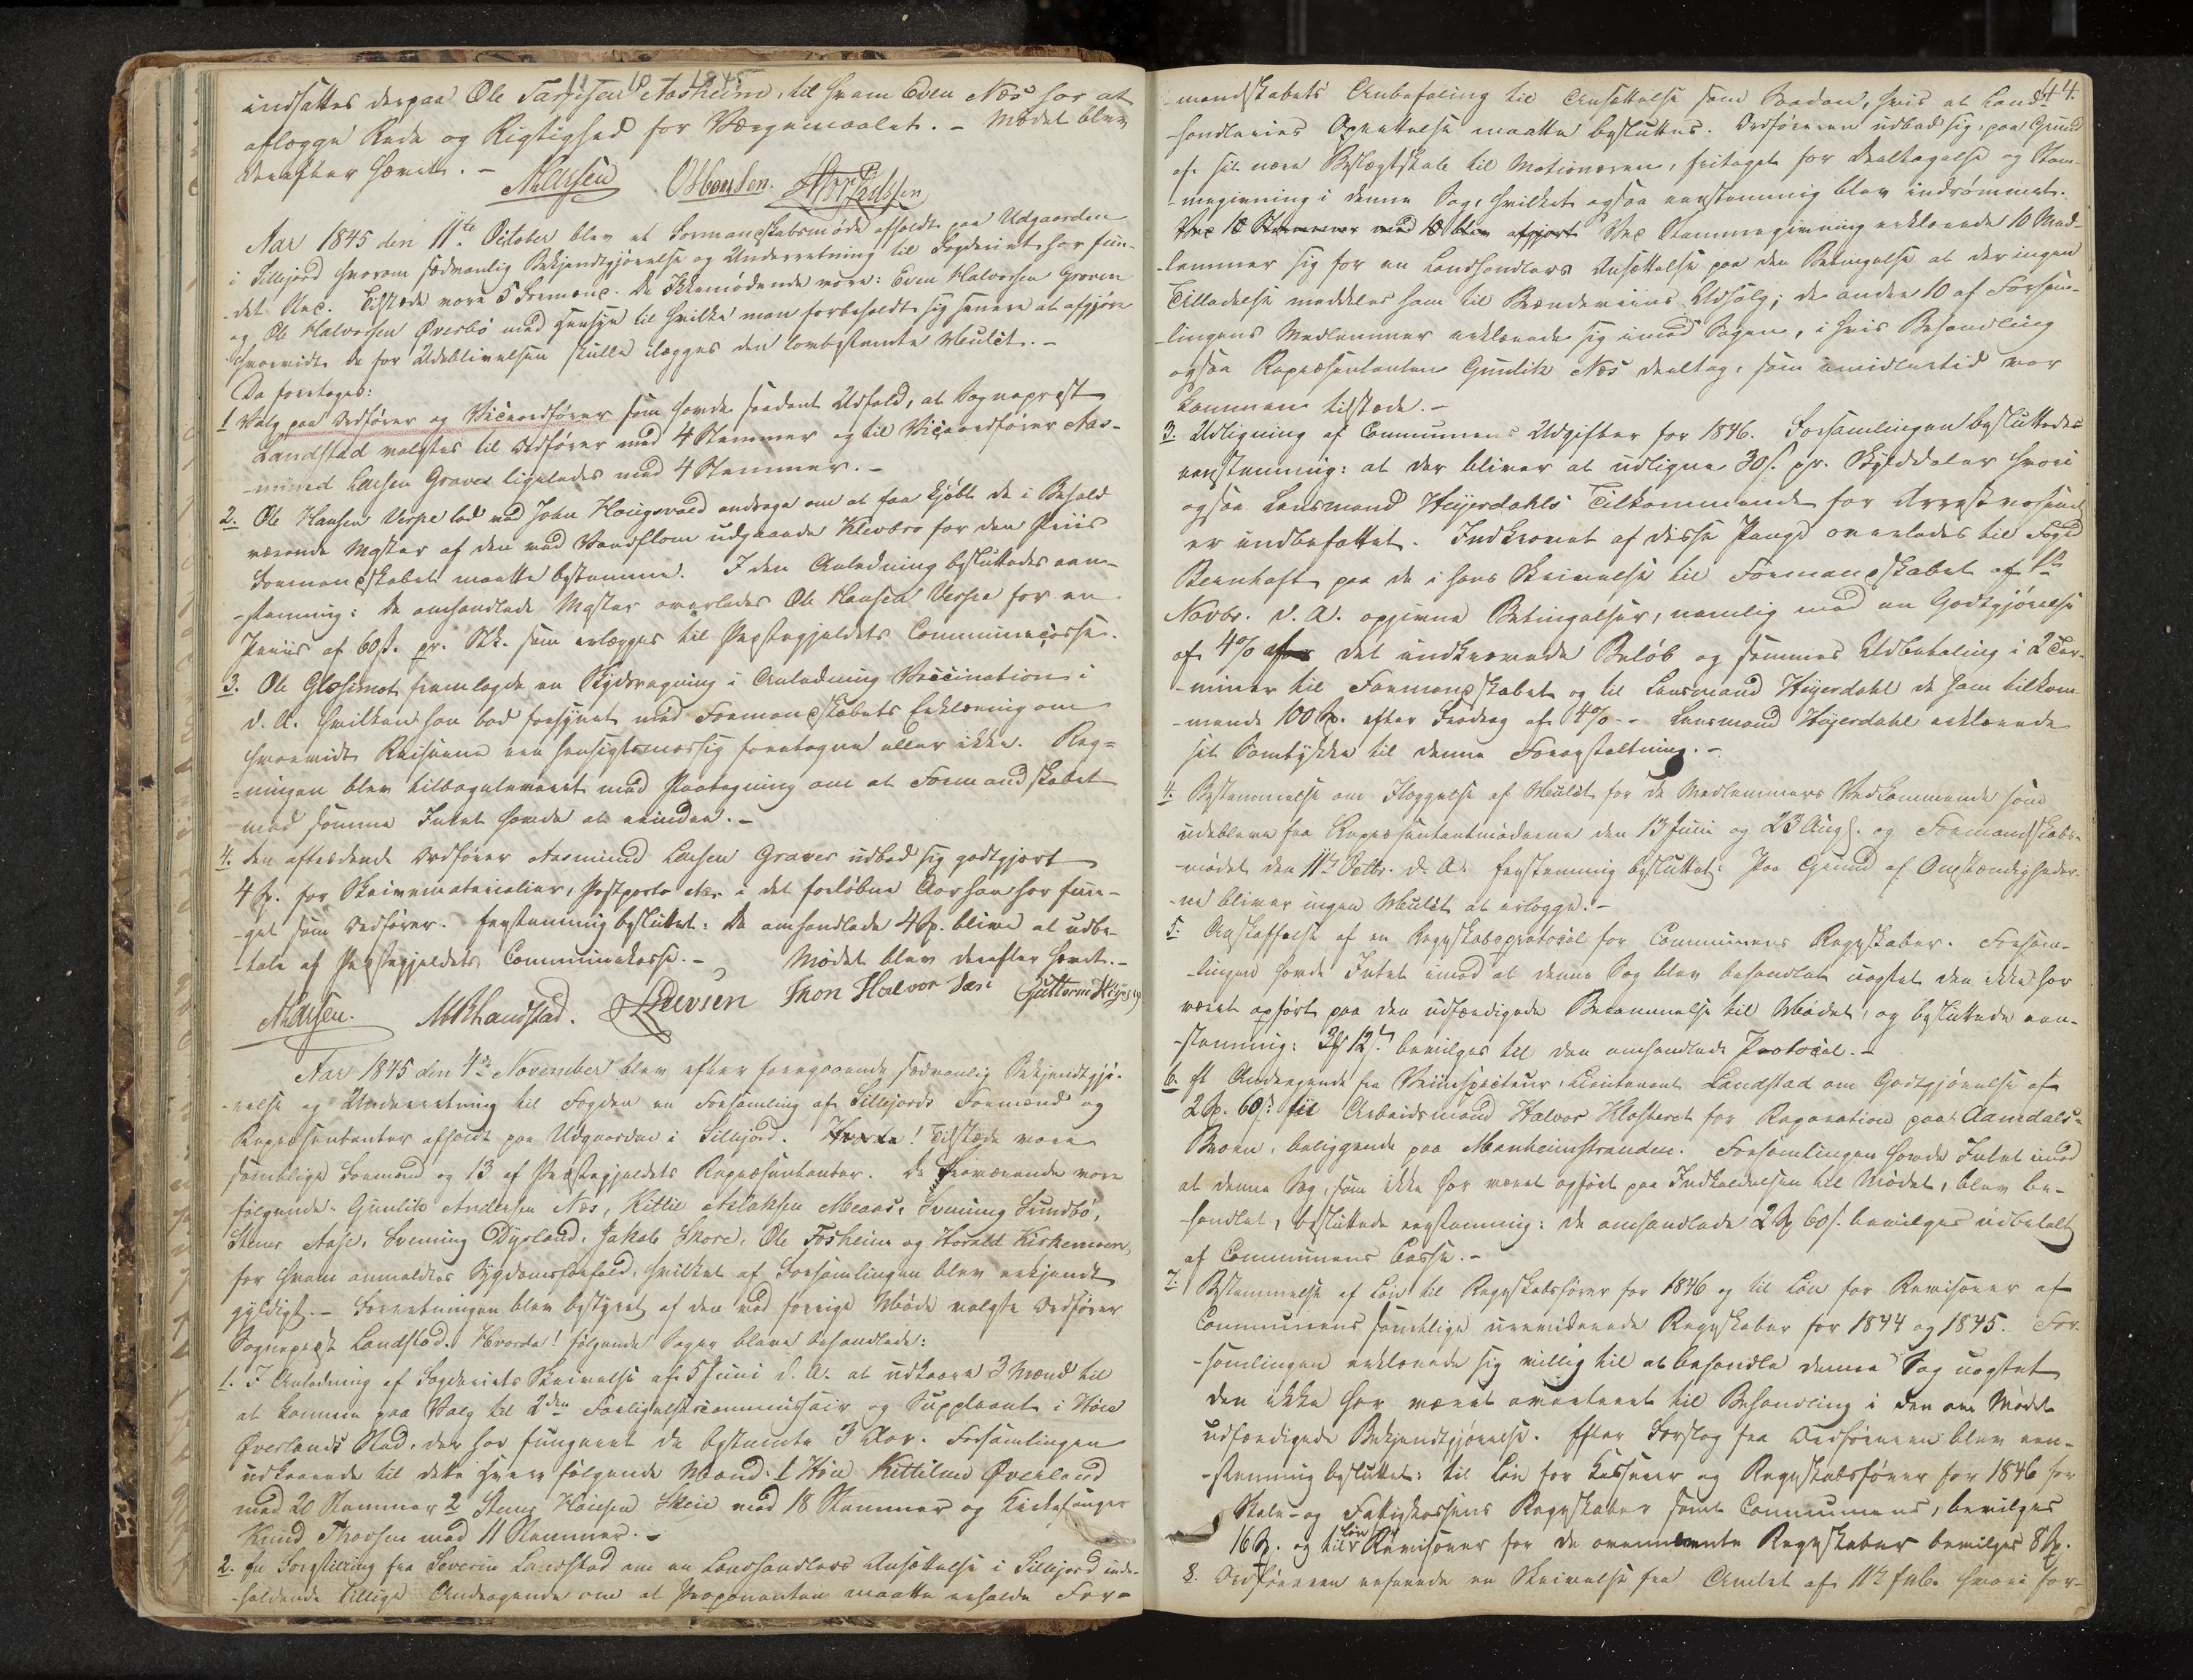 11 - 10 - 1845
indsættes derpaa Ole Tarjesen Aasheim, til hvem Even Næs har at
aflægge Rede og Rigtighed for Værgemaalet. - Mødet blev
derefter hævet. -
ALarsen OHansen.
Aar 1845 den 11te October blev et Formandskabsmøde afholdt paa Udgaarden
i Sillejord hvorom sædvanlig Bekjendtgjørelse og Underretning til Fogderiet har fun-
det Sted. Tilstæde vare 5 Formænd. De Ikkemødende vare: Even Halvorsen Groven
og Ole Halvorsen Øverbø med Hensyn til hvilke man forbeholdt sig senere at afgjøre
hvorvidt de for Udeblivelsen skulle ilægges den lovbestemte Mulct. -
Da foretoges:
1 Valg paa Ordfører og Viceordfører som havde saadant Udfald, at Sognepræst
Landstad valgtes til Ordfører med 4 Stemmer og til Viceordfører Aas-
-mund Larsen Graver ligeledes med 4 Stemmer. -
2. Ole Hansen Verpe lod ved John Haugsvald andrage om at faa kjøbt de i Behold
værende Master af den ved Vandflom udgaaede Klevbro for den Priis
Formandskabet maatte bestemme. I den Anledning besluttedes een-
-stemmig: De omhandlede Master overlades Ole Hansen Verpe for en
Priis af 60 s. pr. Stk. som erlægges til Præstegjældets Communecasse.
3. Ole Glosimot fremlagde en Skydsregning i Anledning Vaccination i
d. A. hvilken han bad forsynet med Formandskabets Erklæring om
hvorvidt Reiserne ere hensigtsmæssig foretagne eller ikke. Reg-
=ningen blev tilbageleveret med Paategning om at Formandskabet
mod samme Intet havde at erindre. -
4. den aftrædende Ordfører Aasmund Larsen Graver udbad sig godtgjort
4 Sp. for Skrivematerialier, Postporto etc. i det forløbne Aar han har fun-
-get som Ordfører. Eenstemmig besluttet: De omhandlede 4 Sp. blive at udbe-
-tale af Præstegjældets Communekasse. - Mødet blev derefter hævet. -
ALarsen. MBLandstad. Thon Halvorsen Guttorm
Aar 1845 den 4de November blev efter foregaaende sædvanlig Bekjendtgjø-
-relse og Underretning til Fogden en Forsamling af Sillejords Formænd og
Repræsentanter afholdt paa Udgaarden i Sillejord. Hvorda! Tilstæde vare
samtlige Formænd og 13 af Præstegjældets Repræsentanter. De fraværende vare
følgende: Gunlik Andersen Næs, Kittil Aslaksen Meaas, Svenung Sundbø,
Stener Aase, Svenung Dyrland, Jakob Skore, Ole Fosheim og Harald Kirkemoen,
for hvem anmeldtes Sygdomsforfald, hvilket af Forsamlingen blev erkjendt
gyldigt. - Forretningen blev bestyret af den ved forrige Møde valgte Ordfører
Sognepræst Landstad. Hvorda! følgende Sager bleve behandlede:
1. I Anledning af Fogderiets Skrivelse af 5 Juni d. A. at udkaare 3 Mænd til
at komme paa Valg til 2den Forligelsescommissair og Suppleant i Høie
Øverlands Sted, der har fungeret de bestemte 3 Aar. Forsamlingen
udkaarede til dette Hverv følgende Mænd: 1 Høie Kittilsen Øverland
med 20 Stemmer 2 Stener Høiesen Skeie med 18 Stemmer og Kirkesanger
Knud Thorsen med 11 Stemmer. -
2. En Forestilling fra Severin Landstad om en Landhandlers Ansættelse i Sillejord inde-
-holdende tillige Andragende om at Proponenten maatte erholde For-
44.
-mandskabets Anbefaling til Ansættelse som Saadan, hvis et Land-
-handleries Oprettelse maatte besluttes. Ordføreren udbad sig, paa Grund
af sit nære Beslægtskab til Motionæren, fritaget for Deeltagelse og Stem-
-megivning i denne Sag, hvilket ogsaa eenstemmig blev indrømmet.
Ved 10 Stemmer mod 10 blev afgjort Ved Stemmegivning erklærede 10 Med-
-lemmer sig for en Landhandlers Ansættelse paa den Betingelse at der ingen
Tilladelse meddeles ham til Brændeviins Udsalg; de andre 10 af Forsam-
-lingens Medlemmer erklærede sig imod Sagen, i hvis Behandling
ogsaa Repræsentanten Gunlik Næs deeltog, som imidlertid var
kommen tilstede. -
3. Udligning af Communens Udgifter for 1846. Forsamlingen besluttede
eenstemmig: at der bliver at udligne 30 s. pr. Skylddaler hvori
ogsaa Lensmand Heyerdahls Tilkommende for Arrestvæsenet
er indbefattet. Indkrævet af disse Penge overlades til Foged
Bernhoft paa de i hans Skrivelse til Formandskabet af 1ste
Novbr. d. A. opgivne Betingelser, nemlig mod en Godtgjørelse
af 4% af det indkrævede Beløb og sammes Udbetaling i 2 Ter-
-miner til Formandskabet og til Lensmand Heyerdahl de ham tilkom-
-mende 100 Sp. efter Fradrag af 4%. - Lensmand Heyerdahl erklærede
sit Samtykke til denne Foranstaltning. -
4. Bestemmelse om Ilæggelse af Mulct for de Medlemmers Vedkommende som
udebleve fra Repræsentantmøderne den 13 Juni og 23 Aug. og Formandskabs-
-mødet den 11te Octbr. d. A. Eenstemmig besluttet: Paa Grund af Omstændighede-
-ne bliver ingen Mulct at erlægge. -
5. Anskaffelse af en Regnskabsprotocol for Communens Regnskaber. Forsam-
-lingen havde Intet imod at denne Sag blev behandlet uagtet den ikke har
været opført paa den udfærdigede Berammelse til Mødet, og besluttede een-
-stemmig: 3 12 s. bevilges til den omhandlede Protocol. -
6. Et Andragende fra Veiinspecteur, Lieutenant Landstad om Godtgjørelse af
2 Sp. 60 s. til Arbeidsmand Halvor Klosteret for Reparation paa Aamdals-
Broen, beliggende paa Manheimstranden. Forsamlingen havde Intet imod
at denne Sag, som ikke har været opført paa Indkaldelsen til Mødet, blev be-
-handlet, besluttede eenstemmig: De omhandlede 2 Sp 60 s. bevilges udbetalt
af Communens Casse. -
7. Bestemmelse af Løn til Regnskabsfører for 1846 og til Løn for Revisorer af
Communens samtlige ureviderede Regnskaber for 1844 og 1845. For-
-samlingen erklærede sig villig til at behandle denne Sag uagtet
den ikke har været averteret til Behandling i den om Mødet
udfærdigede Bekjendtgjørelse. Efter Forslag fra Ordføreren blev een-
-stemmig besluttet: til Løn for Kasserer og Regnskabsfører for 1846 for
Skole- og Fattigkassens Regnskaber samt Communens, bevilges
16 Sp. og til Løn Revisorer for de ovennævnte Regnskaber bevilges 8 Sp.
8. Ordføreren refererede en Skrivelse fra Amtet af 11te Feb. hvori for-